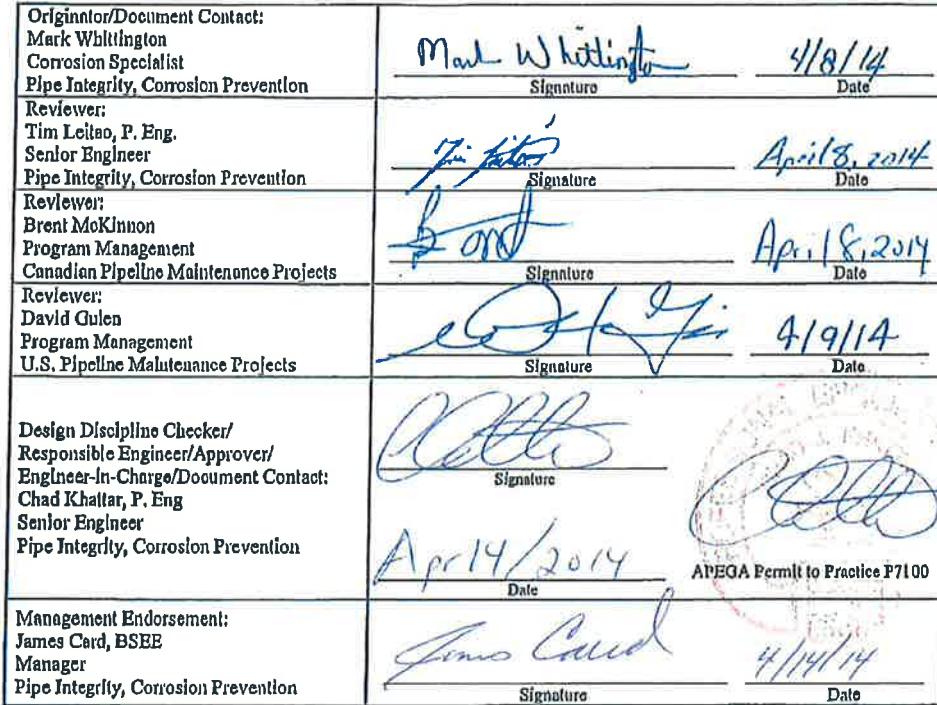 Originator/Document Contact:
Mark Whittington
Corrosion Specialist
Pipe Integrity, Corrosion Prevention
Mark Whittington
Signature
4/8/14
Date
Reviewer:
Tim Leitao, P. Eng.
Senior Engineer
Pipe Integrity, Corrosion Prevention
Signature
April 8, 2014
Date
Reviewer:
Brent McKinnon
Program Management
Canadian Pipeline Maintenance Projects
Signature
April 8, 2014
Date
Reviewer:
David Gulen
Program Management
U.S. Pipeline Maintenance Projects
Signature
4/9/14
Date
Design Discipline Checker/
Responsible Engineer/Approver/
Engineer-In-Charge/Document Contact:
Chad Khattar, P. Eng
Senior Engineer
Pipe Integrity, Corrosion Prevention
Signature
Apr 14/2014
Date
APEGA Permit to Practice P7100
Management Endorsement:
James Card, BSEE
Manager
Pipe Integrity, Corrosion Prevention
James Card
Signature
4/14/14
Date